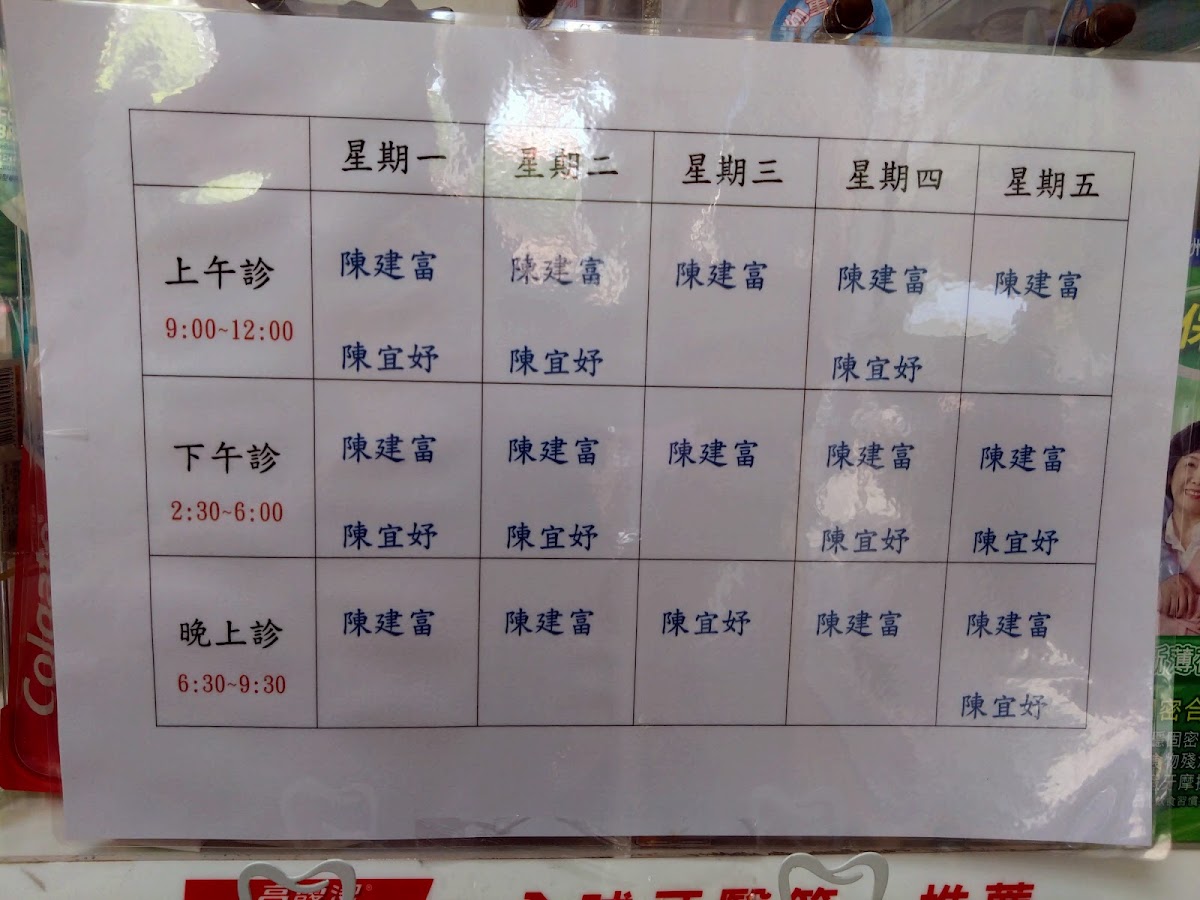 星期一 星期二 星期三 星期四 星期五
上午診 陳建富 陳建富 陳建富 陳建富 陳建富
9:00~12:00
陳宜妤 陳宜妤 陳宜妤
下午診 陳建富 陳建富 陳建富 陳建富 陳建富
2:30~6:00
陳宜妤 陳宜妤 陳宜妤 陳宜妤
晚上診 陳建富 陳建富 陳宜妤 陳建富 陳建富
6:30~9:30
陳宜妤
Colgate
高露潔®
推薦